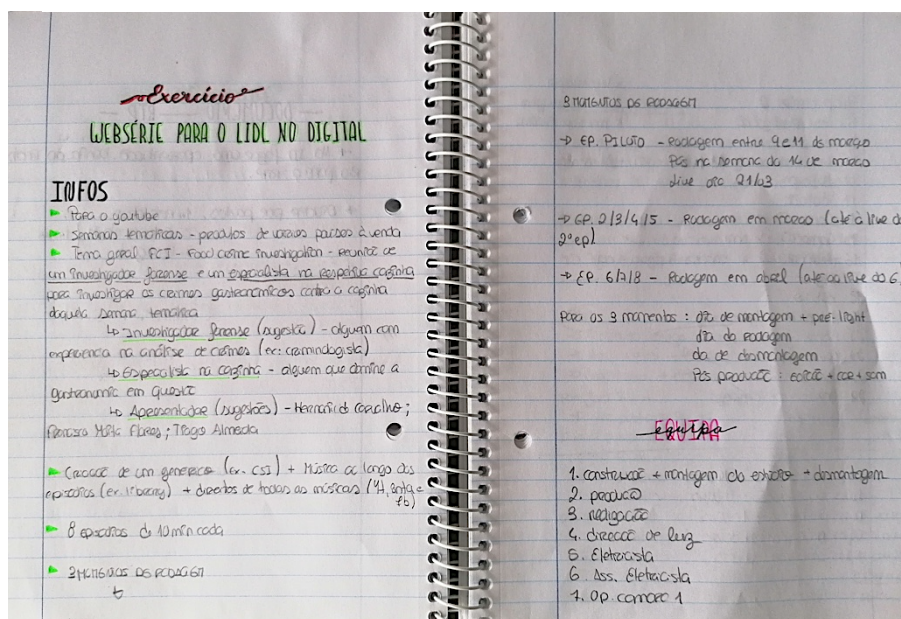 Exercício
WEBSÉRIE PARA O LIDL NO DIGITAL
INFOS
Para o youtube
Semanas temáticas - produtos de vários países à venda
Tema geral FCI - Food crime investigation - reunião de
um investigador forense e um especialista na respetiva cozinha
para investigar os crimes gastronómicos contra a cozinha
daquela semana temática
↳ Investigador forense (sugestão) - alguém com
experiência na análise de crimes (ex: criminologista)
↳ Especialista na cozinha - alguém que domine a
gastronomia em questão
↳ Apresentador (sugestões) - Hermanito Carvalho;
Francisca Maria Flores; Tiago Almeida
Criação de um genérico (ex. CSI) + Música ao longo dos
episódios (ex. library) + direitos de todas as músicas (Yt, insta e
fb)
8 episódios de 10min cada
3 MOMENTOS DE RODAGEM
3 MOMENTOS DE RODAGEM
→ EP. PILOTO - Rodagem entre 9 e 11 de março
Pós na semana de 14 de março
Live dia 21/03
→ EP. 2/3/4/5 - Rodagem em março (até à live do
2º ep)
→ EP. 6/7/8 - Rodagem em abril (até ao live do 6
Para os 3 momentos : dia de montagem + pré-light
dia de rodagem
dia de desmontagem
Pós produção : edição + cor + som
EQUIPA
equipa
1. construção + montagem do estúdio + desmontagem
2. produção
3. realização
4. direção de luz
5. Eletricista
6. Ass. Eletricista
7. Op. câmara 1